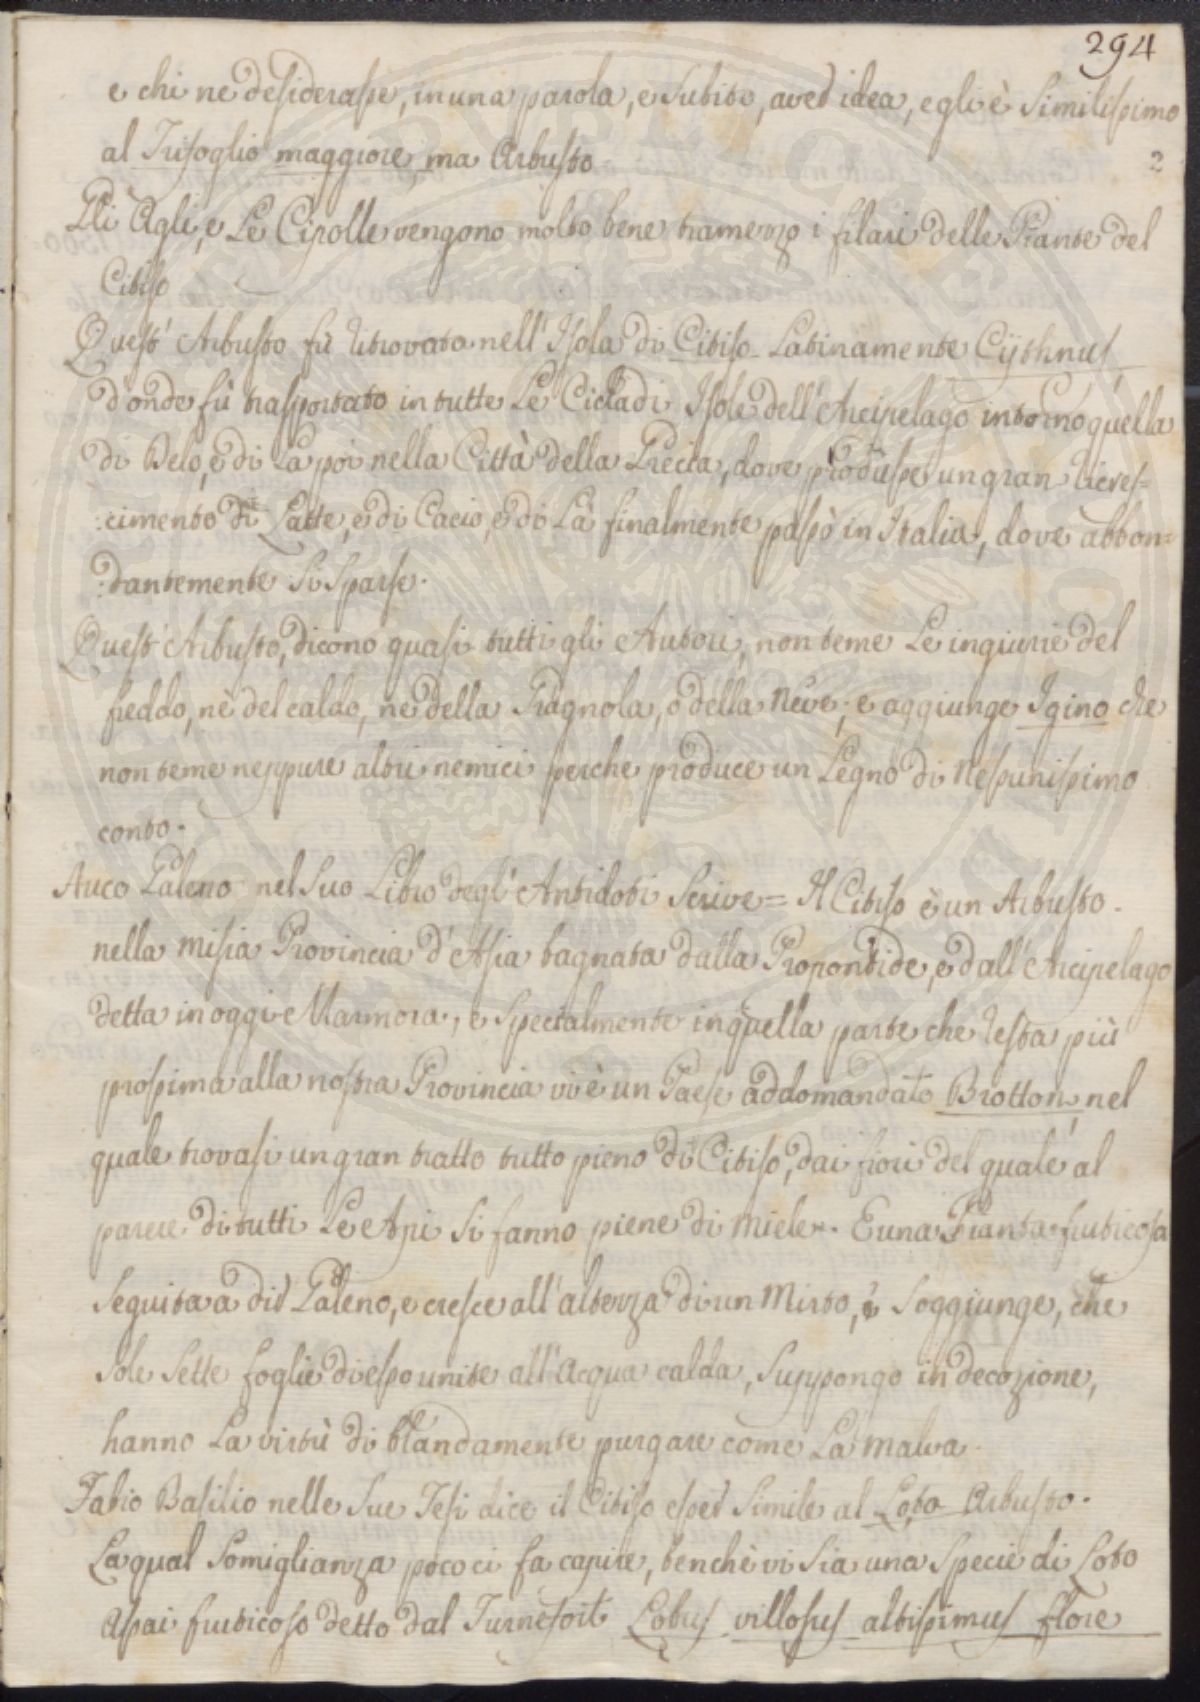 294
e chi ne desiderasse, in una parola, e subito, aver idea, egli è similissimo
2
al Trifoglio maggiore, ma Arbusto
Gli Agli, e Le Cipolle vengono molto bene tramezzo i filari delle Piante del
Citiso
Quest' Arbusto fù ritrovato nell' Isola di Citiso Latinamente Cythnus
d'onde fù trasportato in tutte Le Cicladi Isole dell' Arcipelago intorno quella
di Delo, e di La poi nella Città della Grecia, dove produsse un gran ricres=
:cimento di Latte, e di Cacio, e di Là finalmente passò in Italia, dove abbon=
:dantemente si sparse.
Quest' Arbusto, dicono quasi tutti gli Autori, non teme Le ingiurie del
freddo, nè del caldo, nè della Gragnola, o della Neve; e aggiunge Igino che
non teme neppure altri nemici perche produce un Legno di Nessunissimo
conto.
Galeno nel suo Libro degl' Antidoti scrive = Il Citiso è un Arbusto.
nella Misia Provincia d'Asia bagnata dalla Propontide, e dall' Arcipelago
detta in oggi Marmora, e specialmente in quella parte che resta più
prossima alla nostra Provincia vi è un Paese addomandato Brotton, nel
quale trovasi un gran tratto tutto pieno di Citiso, dai fiori del quale al
parere di tutti Le Api si fanno piene di miele. E una Pianta fruticosa
Seguita a dir Galeno, e cresce all' altezza di un Mirto, e soggiunge, che
sole sette foglie di esso unite all' Acqua calda, suppongo in decozione,
hanno La virtù di blandamente purgare come La Malva.
Fabio Basilio nelle sue Tesi dice il Citiso esser simile al Loto Arbusto.
La qual somiglianza poco ci fa capire, benchè vi sia una specie di Loto
assai fruticoso detto dal Turnefort Lotus villosus altissimus flore